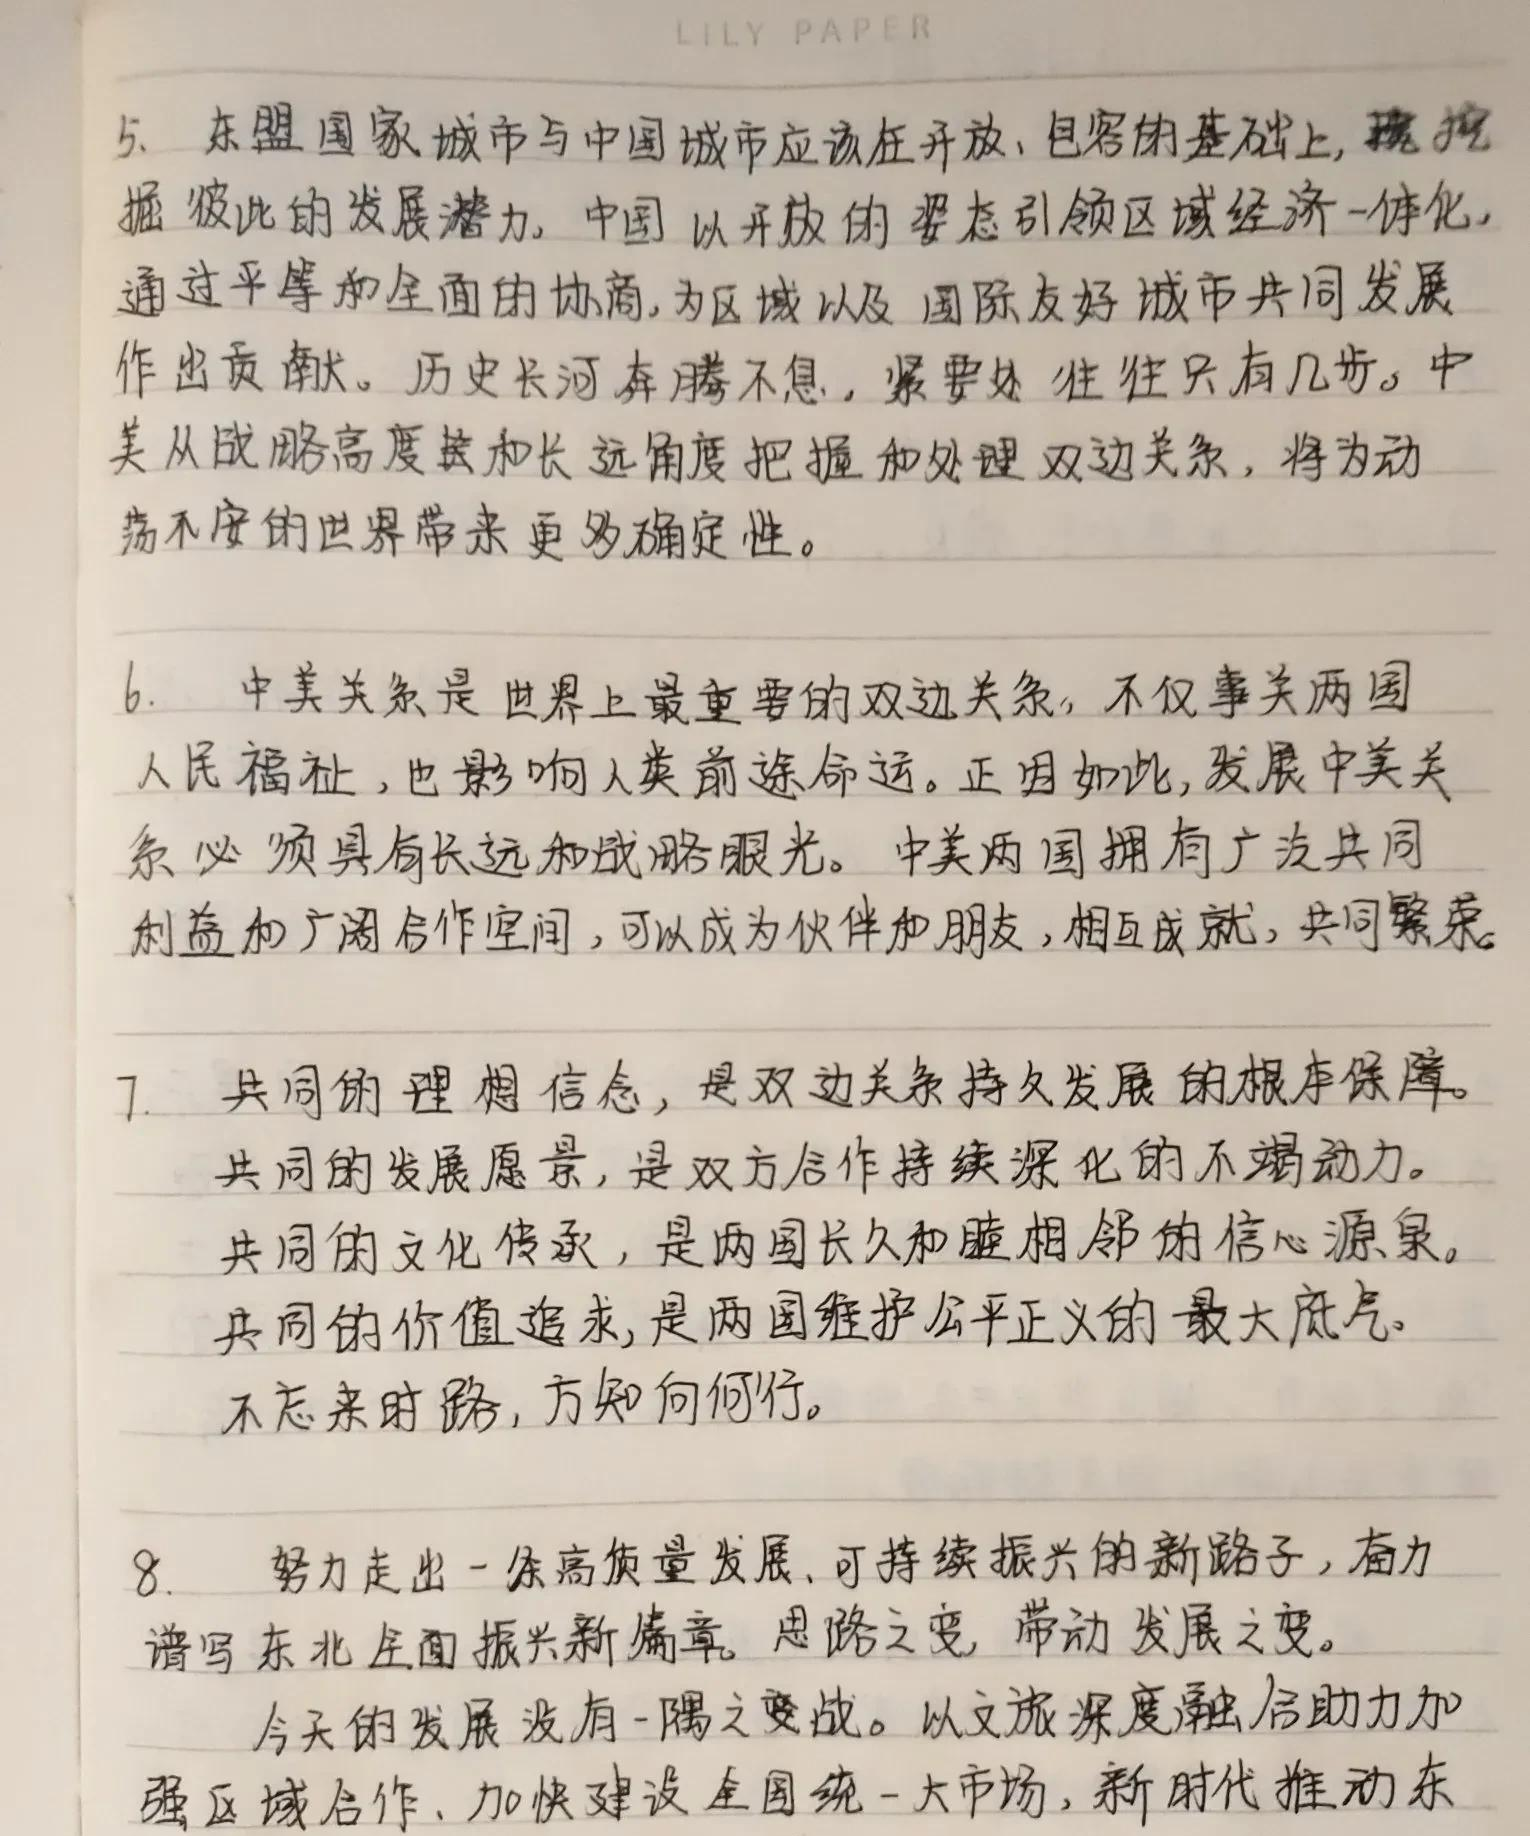 LILY PAPER
5. 东盟国家城市与中国城市应该在开放、包容的基础上,挖
掘彼此的发展潜力。中国以开放的姿态引领区域经济一体化,
通过平等和全面的协商,为区域以及国际友好城市共同发展
作出贡献。历史长河奔腾不息,紧要处往往只有几步。中
美从战略高度和长远角度把握和处理双边关系,将为动
荡不安的世界带来更多确定性。
6. 中美关系是世界上最重要的双边关系,不仅事关两国
人民福祉,也影响人类前途命运。正因如此,发展中美关
系必须具有长远和战略眼光。中美两国拥有广泛共同
利益和广阔合作空间,可以成为伙伴和朋友,相互成就,共同繁荣。
7. 共同的理想信念,是双边关系持久发展的根本保障。
共同的发展愿景,是双方合作持续深化的不竭动力。
共同的文化传承,是两国长久和睦相邻的信心源泉。
共同的价值追求,是两国维护公平正义的最大底气。
不忘来时路,方知向何行。
8. 努力走出一条高质量发展、可持续振兴的新路子,奋力
谱写东北全面振兴新篇章。思路之变,带动发展之变。
今天的发展没有一隅之战。以文旅深度融合助力加
强区域合作、加快建设全国统一大市场,新时代推动东